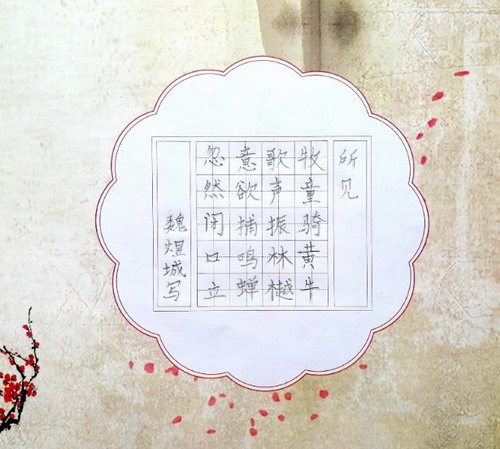 所见
牧童骑黄牛
歌声振林樾
意欲捕鸣蝉
忽然闭口立
魏煜城写